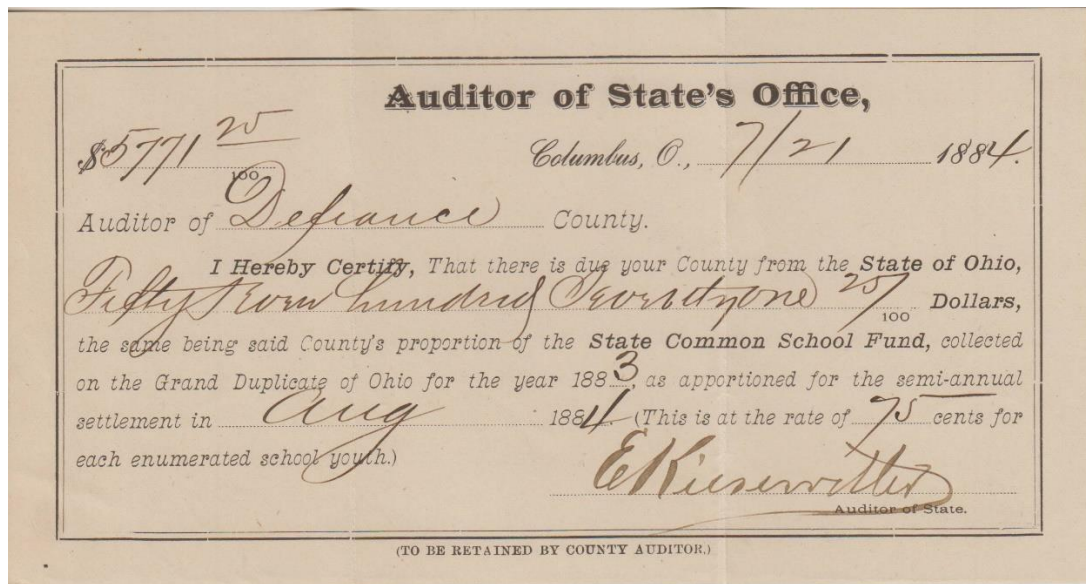 Auditor of State's Office,
$5771 25/100 Columbus, O., 7/21 1884.
Auditor of Defiance County.
I Hereby Certify, That there is due your County from the State of Ohio,
Fifty Seven hundred Seventy one 25/100 Dollars,
the same being said County's proportion of the State Common School Fund, collected
on the Grand Duplicate of Ohio for the year 1883, as apportioned for the semi-annual
settlement in Aug 1884. (This is at the rate of 75 cents for
each enumerated school youth.)
E Kiesewetter
Auditor of State.
(TO BE RETAINED BY COUNTY AUDITOR.)